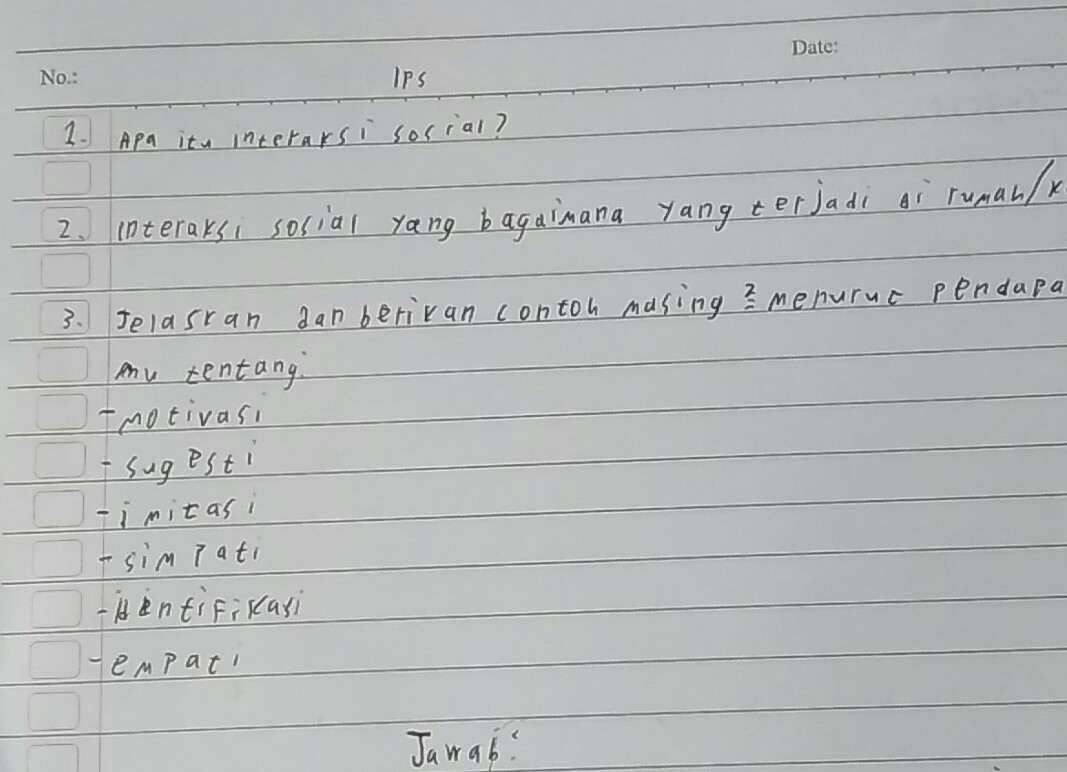 No.:
IPS
Date:
1. Apa itu interaksi sosial?
2. interaksi sosial yang bagaimana yang terjadi di rumah/k
3. Jelaskan dan berikan contoh masing2 menurut pendapa
mu tentang:
- motivasi
- sugesti
- imitasi
- simpati
- identifikasi
- empati
Jawab: